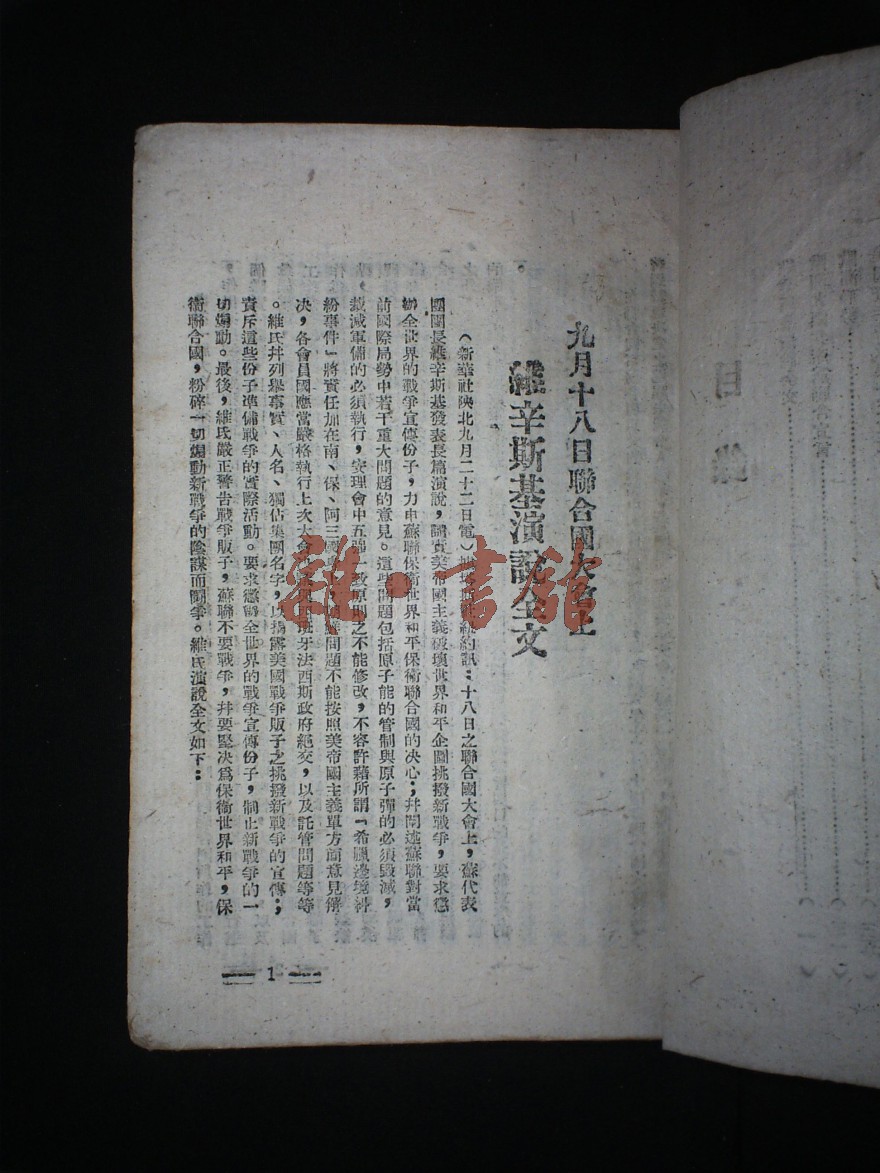 九月十八日聯合國大會上
維辛斯基演說全文
（新華社陝北九月二十二日電）紐約訊：十八日之聯合國大會上，蘇代表
團團長維辛斯基發表長篇演說，譴責美帝國主義破壞世界和平企圖挑撥新戰爭，要求懲
辦全世界的戰爭宣傳份子，力申蘇聯保衛世界和平保衛聯合國的决心；幷闡述蘇聯對當
前國際局勢中若干重大問題的意見。這些問題包括原子能的管制與原子彈的必須毀滅，
裁減軍備的必須執行，安理會中五强一致原則之不能修改，不容許藉所謂「希臘邊境糾
紛事件」將責任加在南、保、阿三國，問題不能按照美帝國主義單方面意見解
决，各會員國應當嚴格執行上次大會班牙法西斯政府絕交，以及託管問題等等
。維氏幷列舉事實、人名、獨佔集團名字，以揭露美國戰爭販子之挑撥新戰爭的宣傳；
責斥這些份子準備戰爭的實際活動。要求懲辦全世界的戰爭宣傳份子，制止新戰爭的一
切煽動。最後，維氏嚴正警告戰爭販子，蘇聯不要戰爭，幷要堅决爲保衛世界和平，保
衛聯合國，粉碎一切煽動新戰爭的陰謀而鬪爭。維氏演說全文如下：
1
雜·書館
目錄